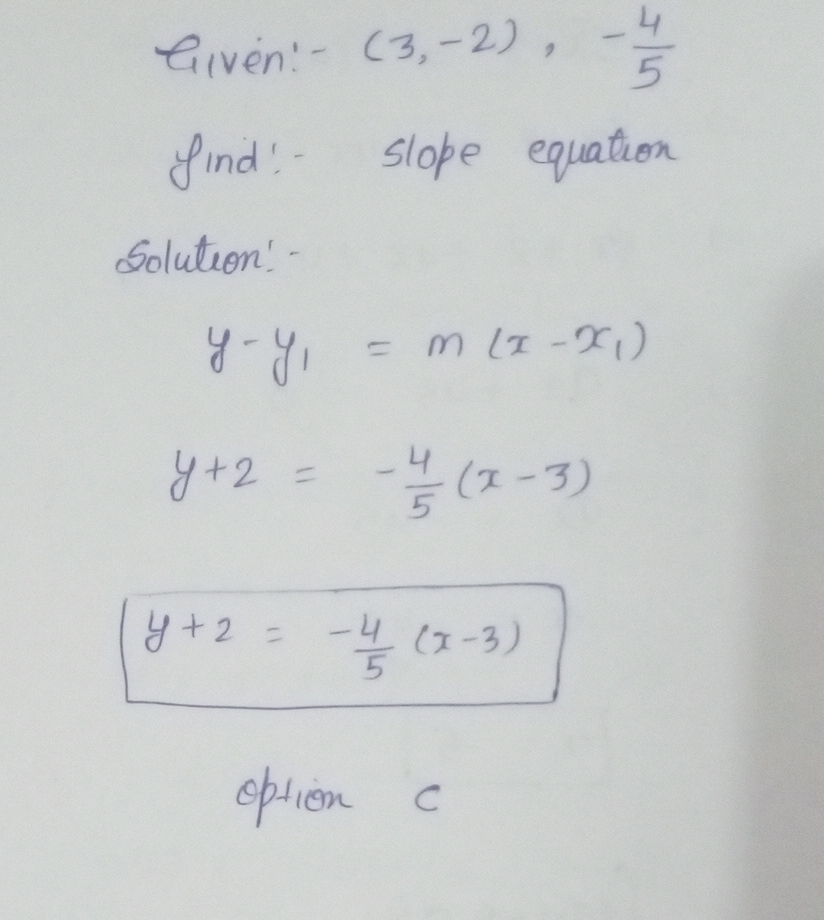 Given:- (3,-2), -4/5
find:- slope equation
Solution:-
y-y₁ = m (x-x₁)
y+2 = -4/5 (x-3)
y+2 = -4/5 (x-3)
option c